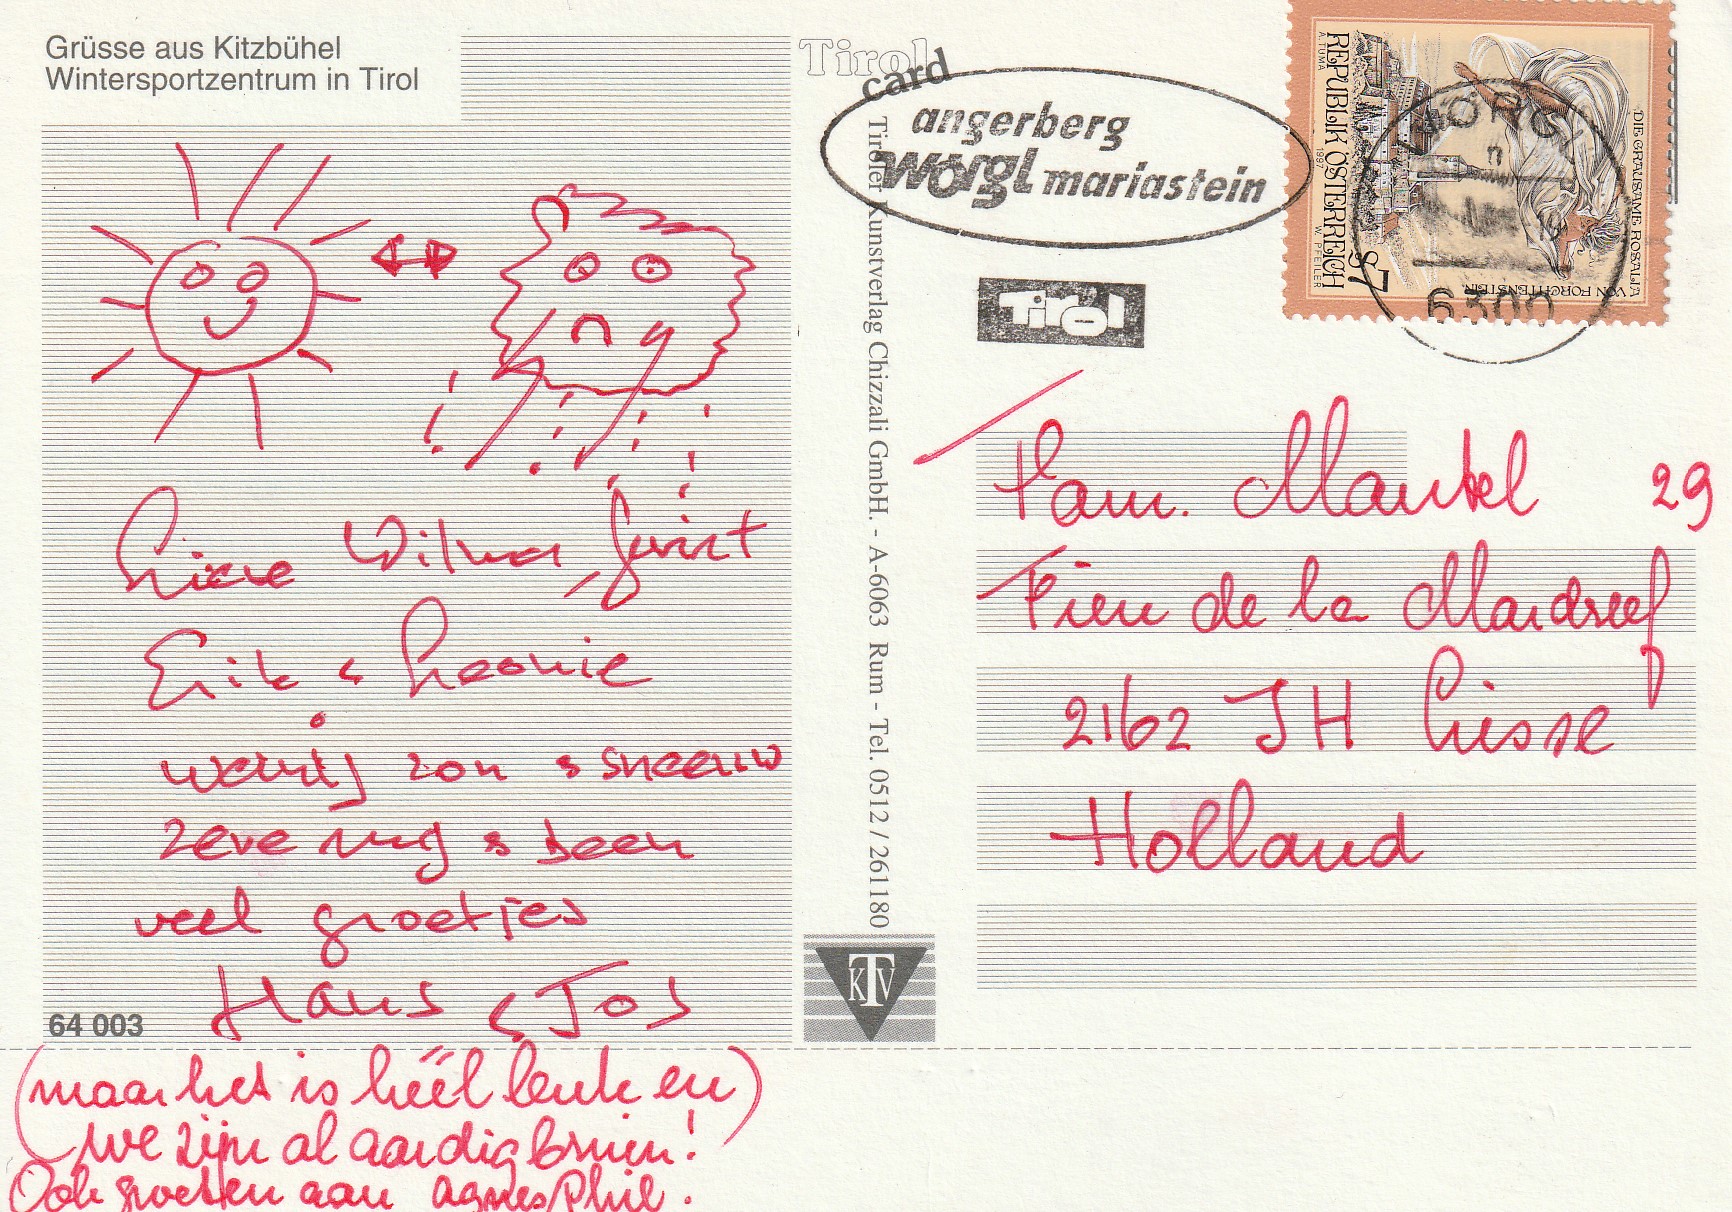 Grüsse aus Kitzbühel
Wintersportzentrum in Tirol
Lieve Wilma, Gerrit
Erik & Leonie
weinig zon & sneeuw
zere rug & been
veel groetjes
Hans & Jos
64 003
(maar het is héél leuk en
we zijn al aardig bruin!)
Ook groeten aan Agnes Phil.
Tirol
card
Tiroler Kunstverlag Chizzali GmbH. - A-6063 Rum - Tel. 0512 / 261180
KTV
angerberg
wörgl mariastein
Tirol
REPUBLIK ÖSTERREICH
A. TUMA 1997 W. PFEILER
S7
DIE GRAUSAME ROSALIA
VON FORCHTENSTEIN
6300
Fam. Mantel
29
Fien de la Mardreef
2162 JH Lisse
Holland